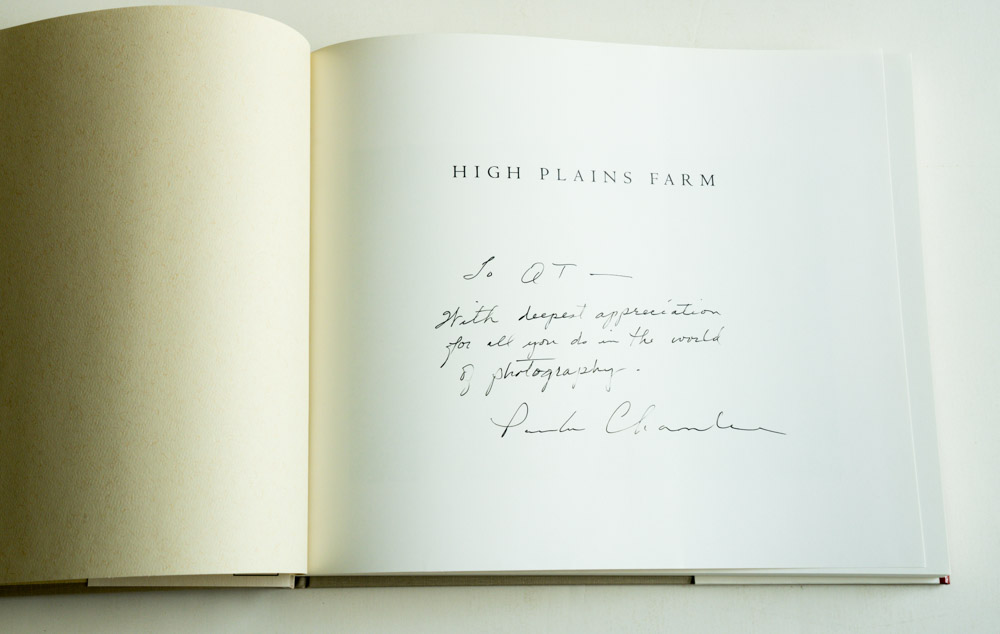 HIGH PLAINS FARM
To QT —
With deepest appreciation
for all you do in the world
of photography.
Paula Chamlee